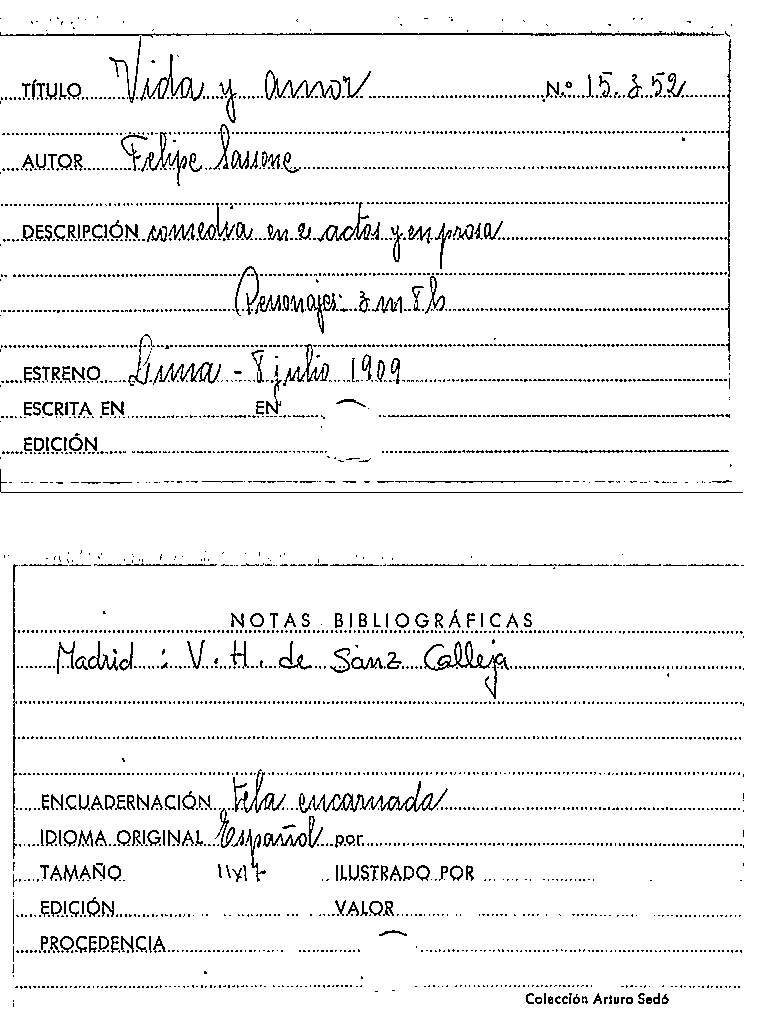 TÍTULO Vida y amor N.º 15.352
AUTOR Felipe Sassone
DESCRIPCIÓN comedia en 2 actos y en prosa
Personajes: 3 m 8 h
ESTRENO Lima - 8 julio 1909
ESCRITA EN EN
EDICIÓN
NOTAS BIBLIOGRÁFICAS
Madrid : V. H. de Sanz Calleja
ENCUADERNACIÓN tela encarnada
IDIOMA ORIGINAL Español por
TAMAÑO 11x17 ILUSTRADO POR
EDICIÓN VALOR
PROCEDENCIA
Colección Arturo Sedó